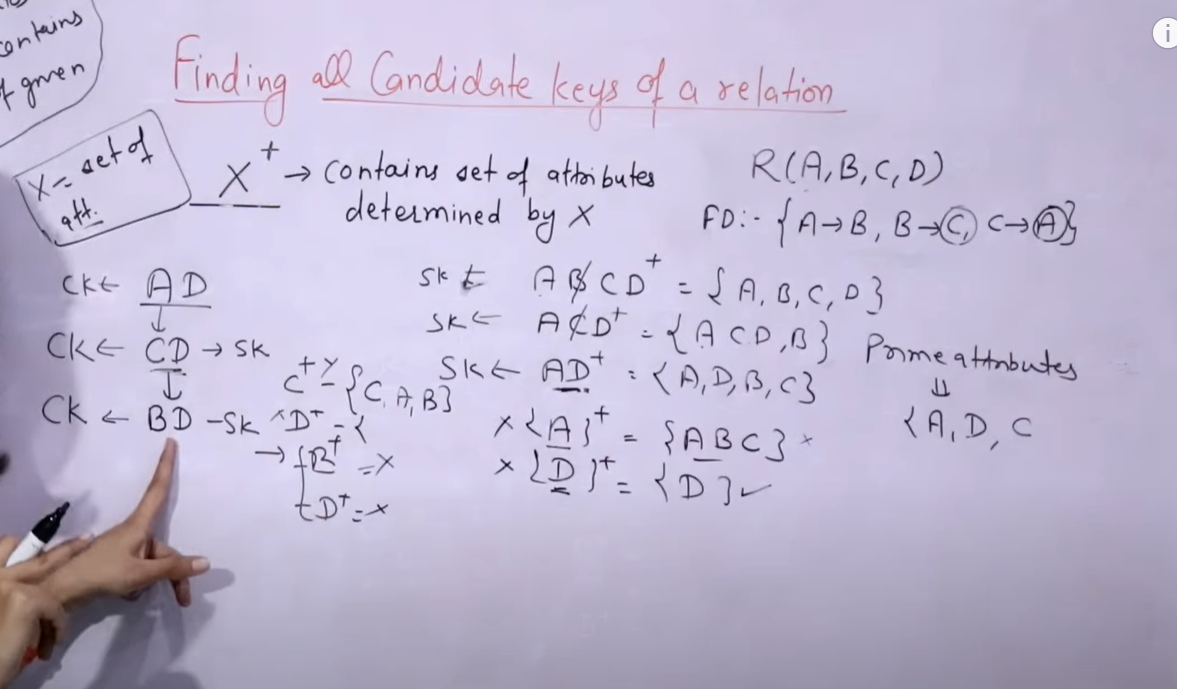 contains
f given
Finding all Candidate keys of a relation
X = set of
att.
X⁺ → Contains set of attributes
determined by X
R(A,B,C,D)
FD:- {A→B, B→C, C→A}
CK← AD
CK← CD → SK
CK ← BD -SK
C⁺ = {C, A, B}
D⁺ = {
→ {B⁺ = ×
D⁺ = ×
SK ← ABCD⁺ = {A, B, C, D}
SK← ACD⁺ = {ACD,B}
SK← AD⁺ = {A,D,B,C}
×{A}⁺ = {ABC}×
×{D}⁺ = {D}✓
Prime attributes
⇓
{A,D,C
i